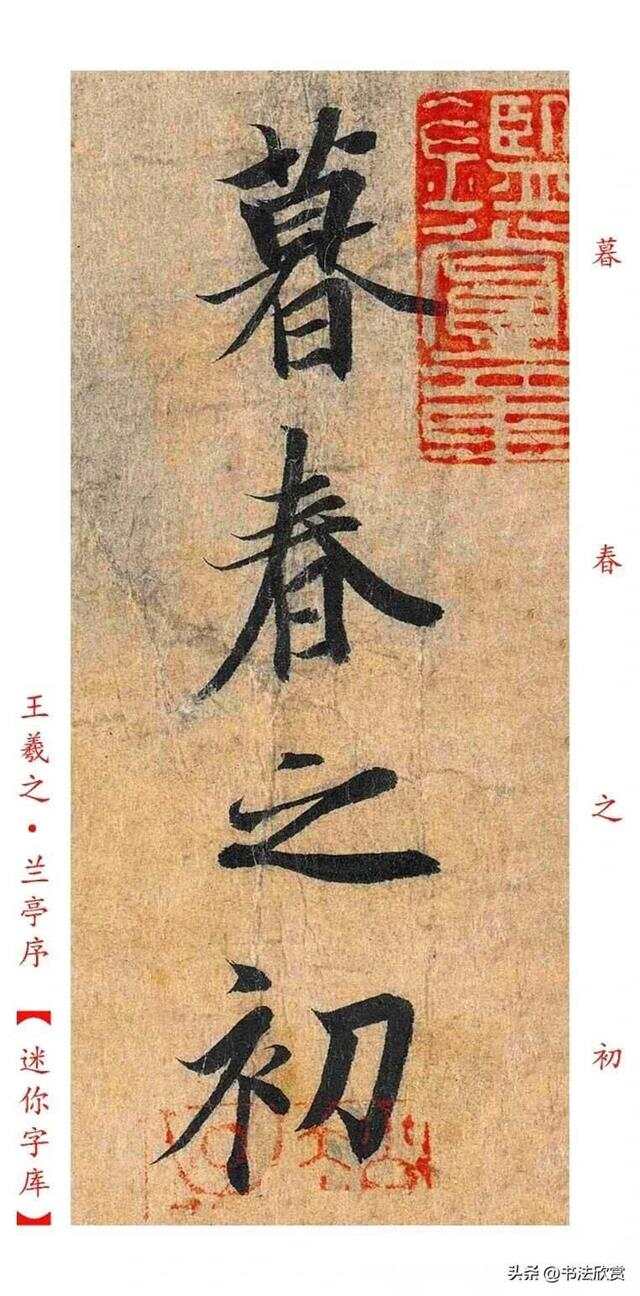 暮春之初
暮
春
之
初
王羲之·兰亭序【迷你字库】
头条 @书法欣赏